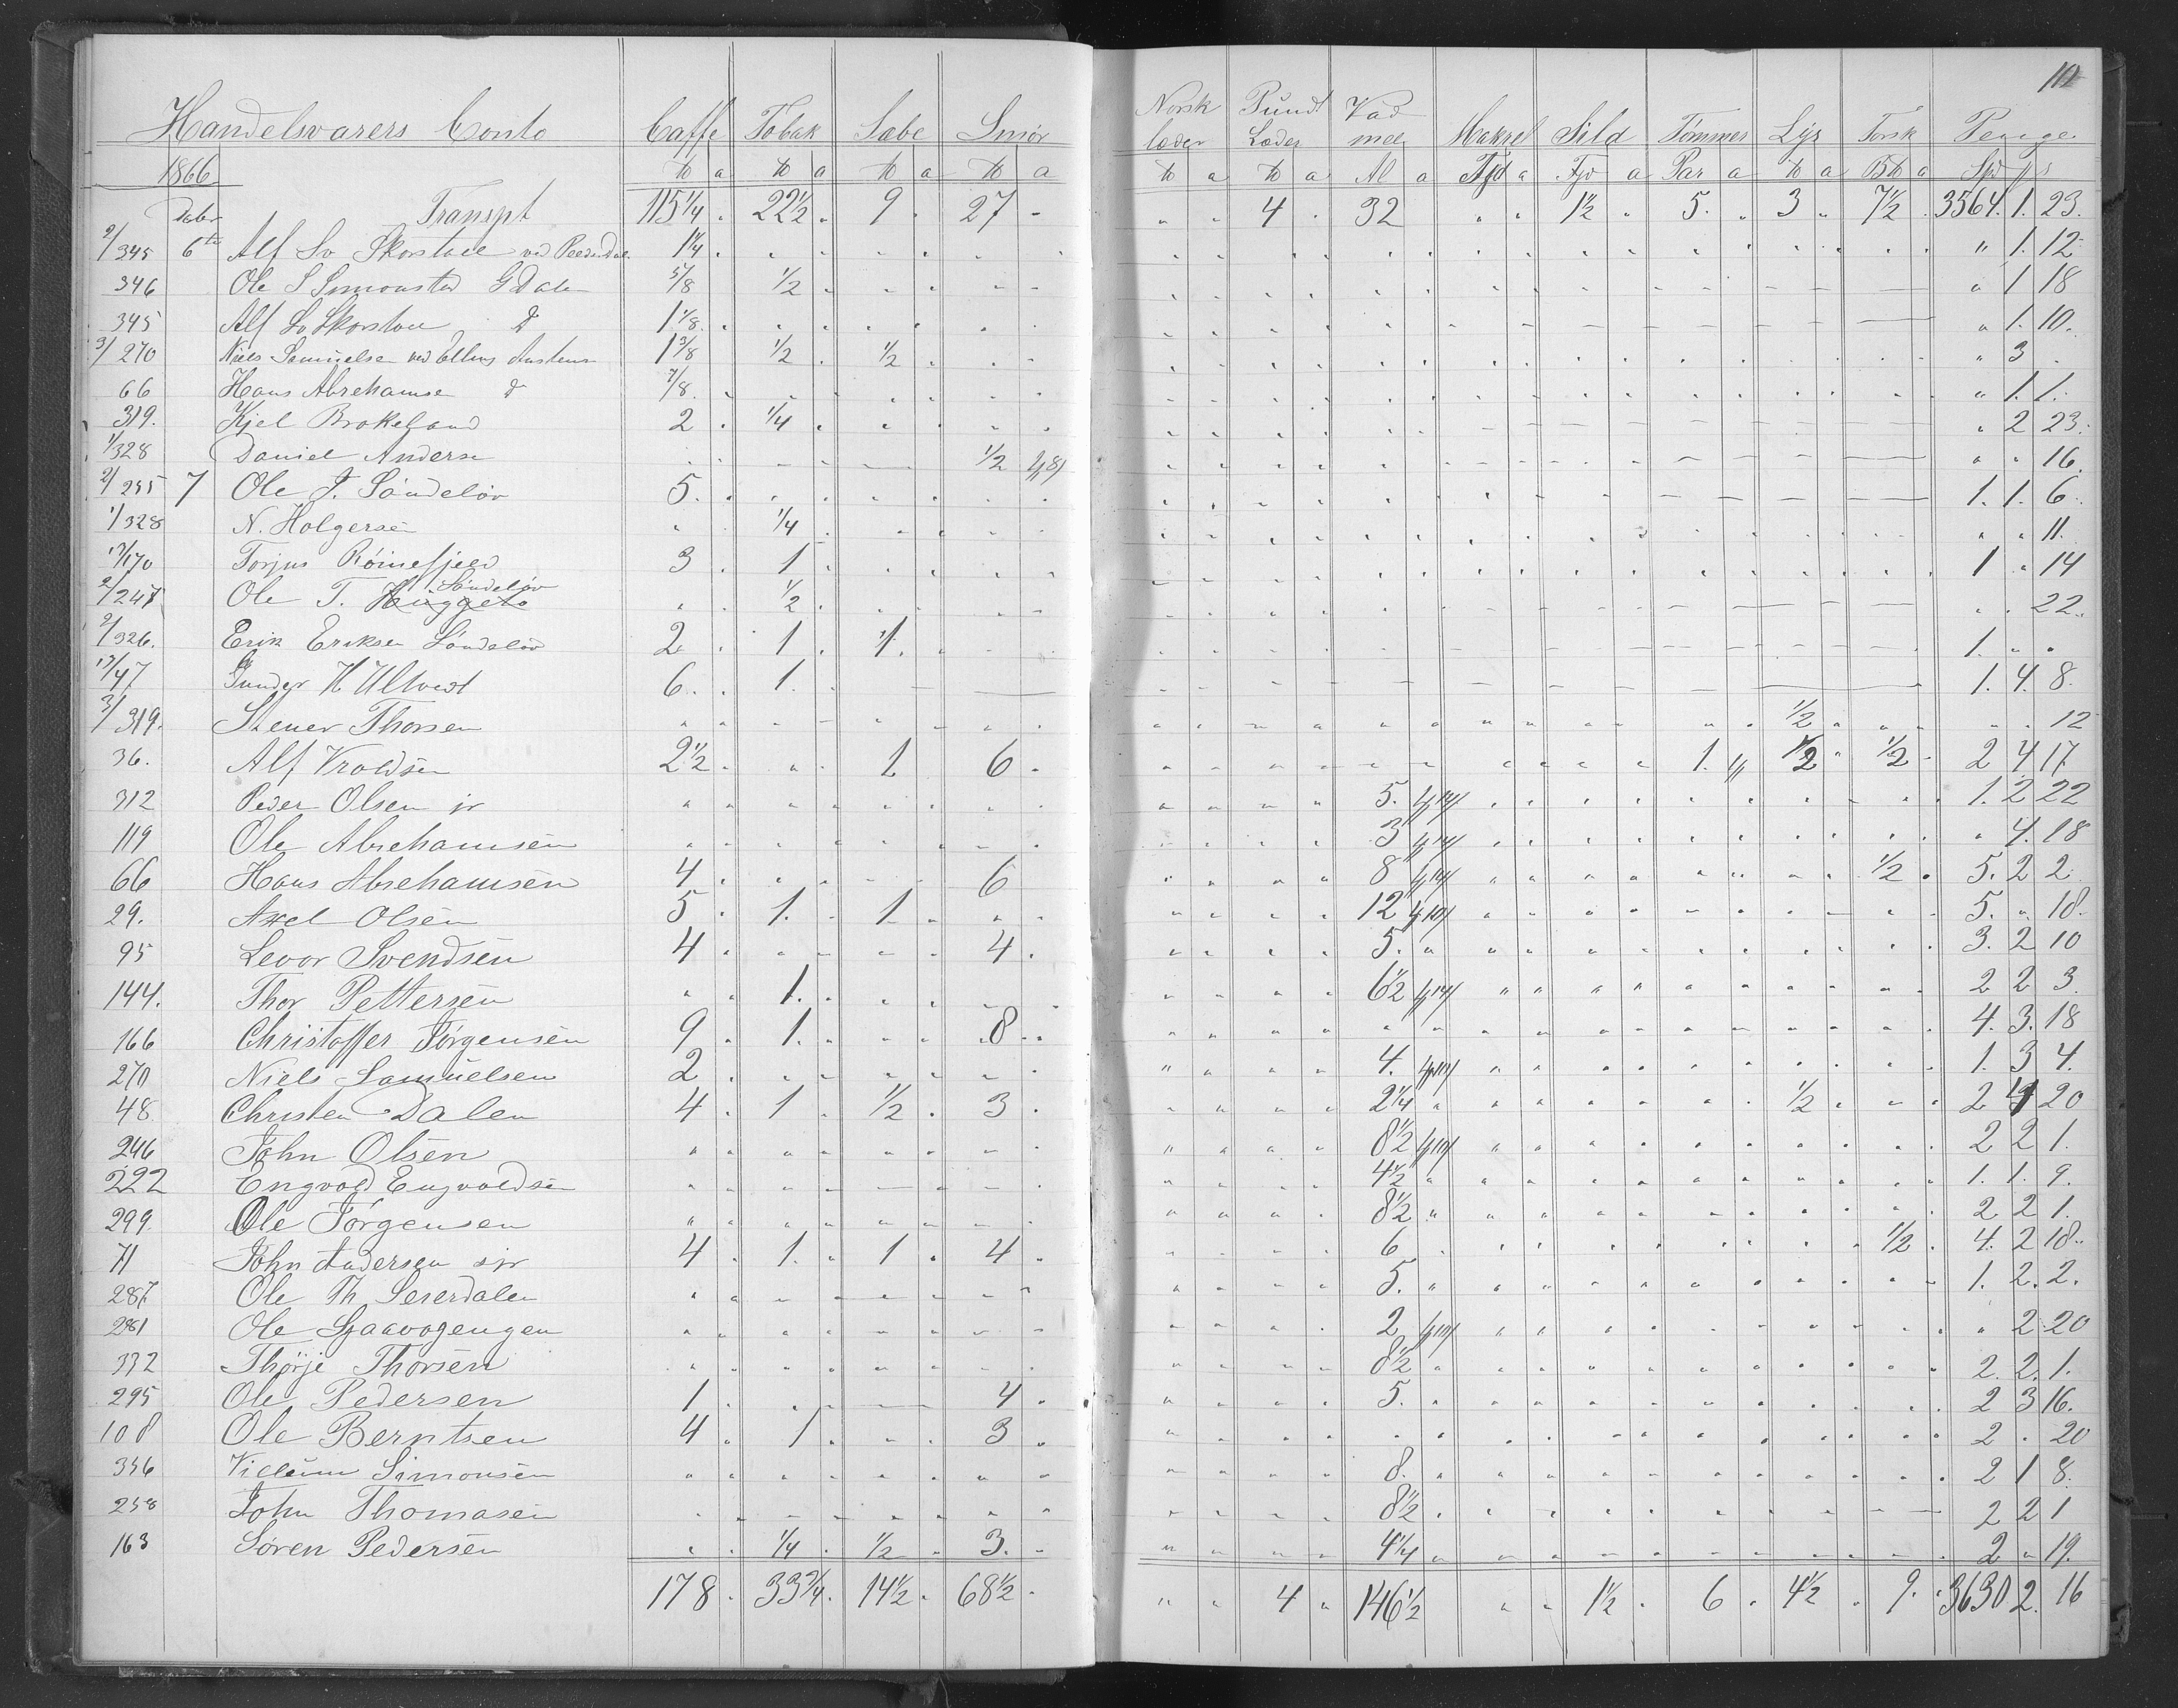 112
Handelsvarers Conto Caffe Tobak Sæbe Smør Norsk læder Pund Læder Vadmel Makrel Sild Tømmer Lys Torsk Penge
1866 ℔ a ℔ a ℔ a ℔ a ℔ a ℔ a Al a Fjd a Fjd a Par a ℔ a B℔ a Spd
Decbr Transpt 115 1/4 22 1/2 9 27 " " 4 32 " " 1 1/2 " 5 " 3 " 7 1/2 3564. 1. 23.
2/345 6te Alf Sv Skorstøl ved 1 1/4 " 1. 12
346 Ole S Simonstad G Dale 5/8 1/2 " 1 18
345 Alf Sv Skorstøl D 1 1/8 " 1. 10.
3/270 Niels Samuelsen ved Ellens 1 3/8 1/2 1/2 " 3
66 Hans Abrehamse D 7/8 " 1. 1.
319. Kjel Brokeland 2 1/4 " 2 23.
1/328 Daniel Anderse 1/2 4/8/ " " 16.
2/255 7 Ole T. Søndeløv 5. 1. 1. 6
1/328 N. Holgersen 1/4 " " 11.
17/170 Torjus Rømefjeld 3 1 1 " 14
2/247 Ole T. Huggeto Søndeløv 1/2 " " 22.
2/326. Erik Eriksen Søndeløv 2 1 1. 1. " "
17/47 Gunder H Ulltveit 6. 1. 1. 4. 8.
3/319. Stener Thorsen 1/2 " " 12
36. Alf Vroldsen 2 1/2 1 6 1. 1/2 1/2 2 4 17
312 Peder Olsen jr 5. 4/14/ 1. 2 22
119 Ole Abrehamsen 3 4/14/ " 4. 18
66 Hans Abrehamsen 4 6 8 4/14/ 1/2 5. 2 2
29. Axel Olsen 5 1. 1 12 4/10/ 5. " 18.
95 Levor Svendsen 4 4. 5. 3. 2 10
144. Thor Pettersen 1. 6 1/2 4/14/ 2 2 3.
166 Christoffer Jørgensen 9 1. 8 4. 3. 18
270 Niels Samuelsen 2 4. 4/10/ 1. 3 4.
48 Christen Dalen 4 1 1/2 3 2 1/4 1/2 2 4 20
246 John Olsen 8 1/2 4/10/ 2 2 1.
222 Engvold Engvoldsen 4 1/2 1. 1. 9.
299. Ole Jørgensen 8 1/2 2 2 1.
71 John Andersen sjr 4 1. 1 4 6 1/2 4. 2 18
287 Ole Th Seierdalen 5. 1. 2. 2.
281 Ole 2 4/10/ " 2 20
332 Thørje Thorsen 8 1/2 2. 2. 1.
295 Ole Pedersen 1 4 5. 2 3 16.
108 Ole Berntsen 4 1 3 2 " 20
356 Villum Simonsen 8. 2 1 8.
258 John Thomasen 8 1/2 2 2 1
163 Søren Pedersen 1/4 1/2 3. 4 1/4 2 " 19.
178 33 3/4 14 1/2 68 1/2 " " 4 " 146 1/2 " " 1 1/2 6 4 1/2 9. 3630 2. 16